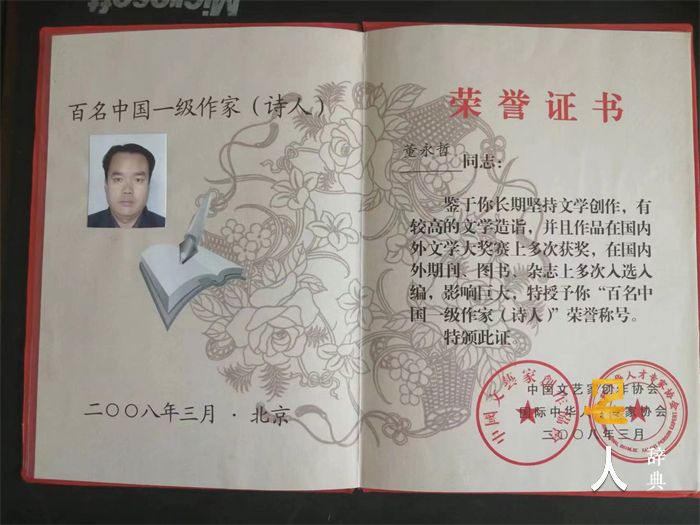 Microsoft
百名中国一级作家(诗人)
二〇〇八年三月·北京
荣誉证书
董永哲
同志:
鉴于你长期坚持文学创作,有
较高的文学造诣,并且作品在国内
外文学大奖赛上多次获奖,在国内
外期刊、图书、杂志上多次入选入
编,影响巨大,特授予你“百名中
国一级作家(诗人)”荣誉称号。
特颁此证。
中国文艺家创作协会
国际中华
家协会
二〇〇八年三月
人
辞典